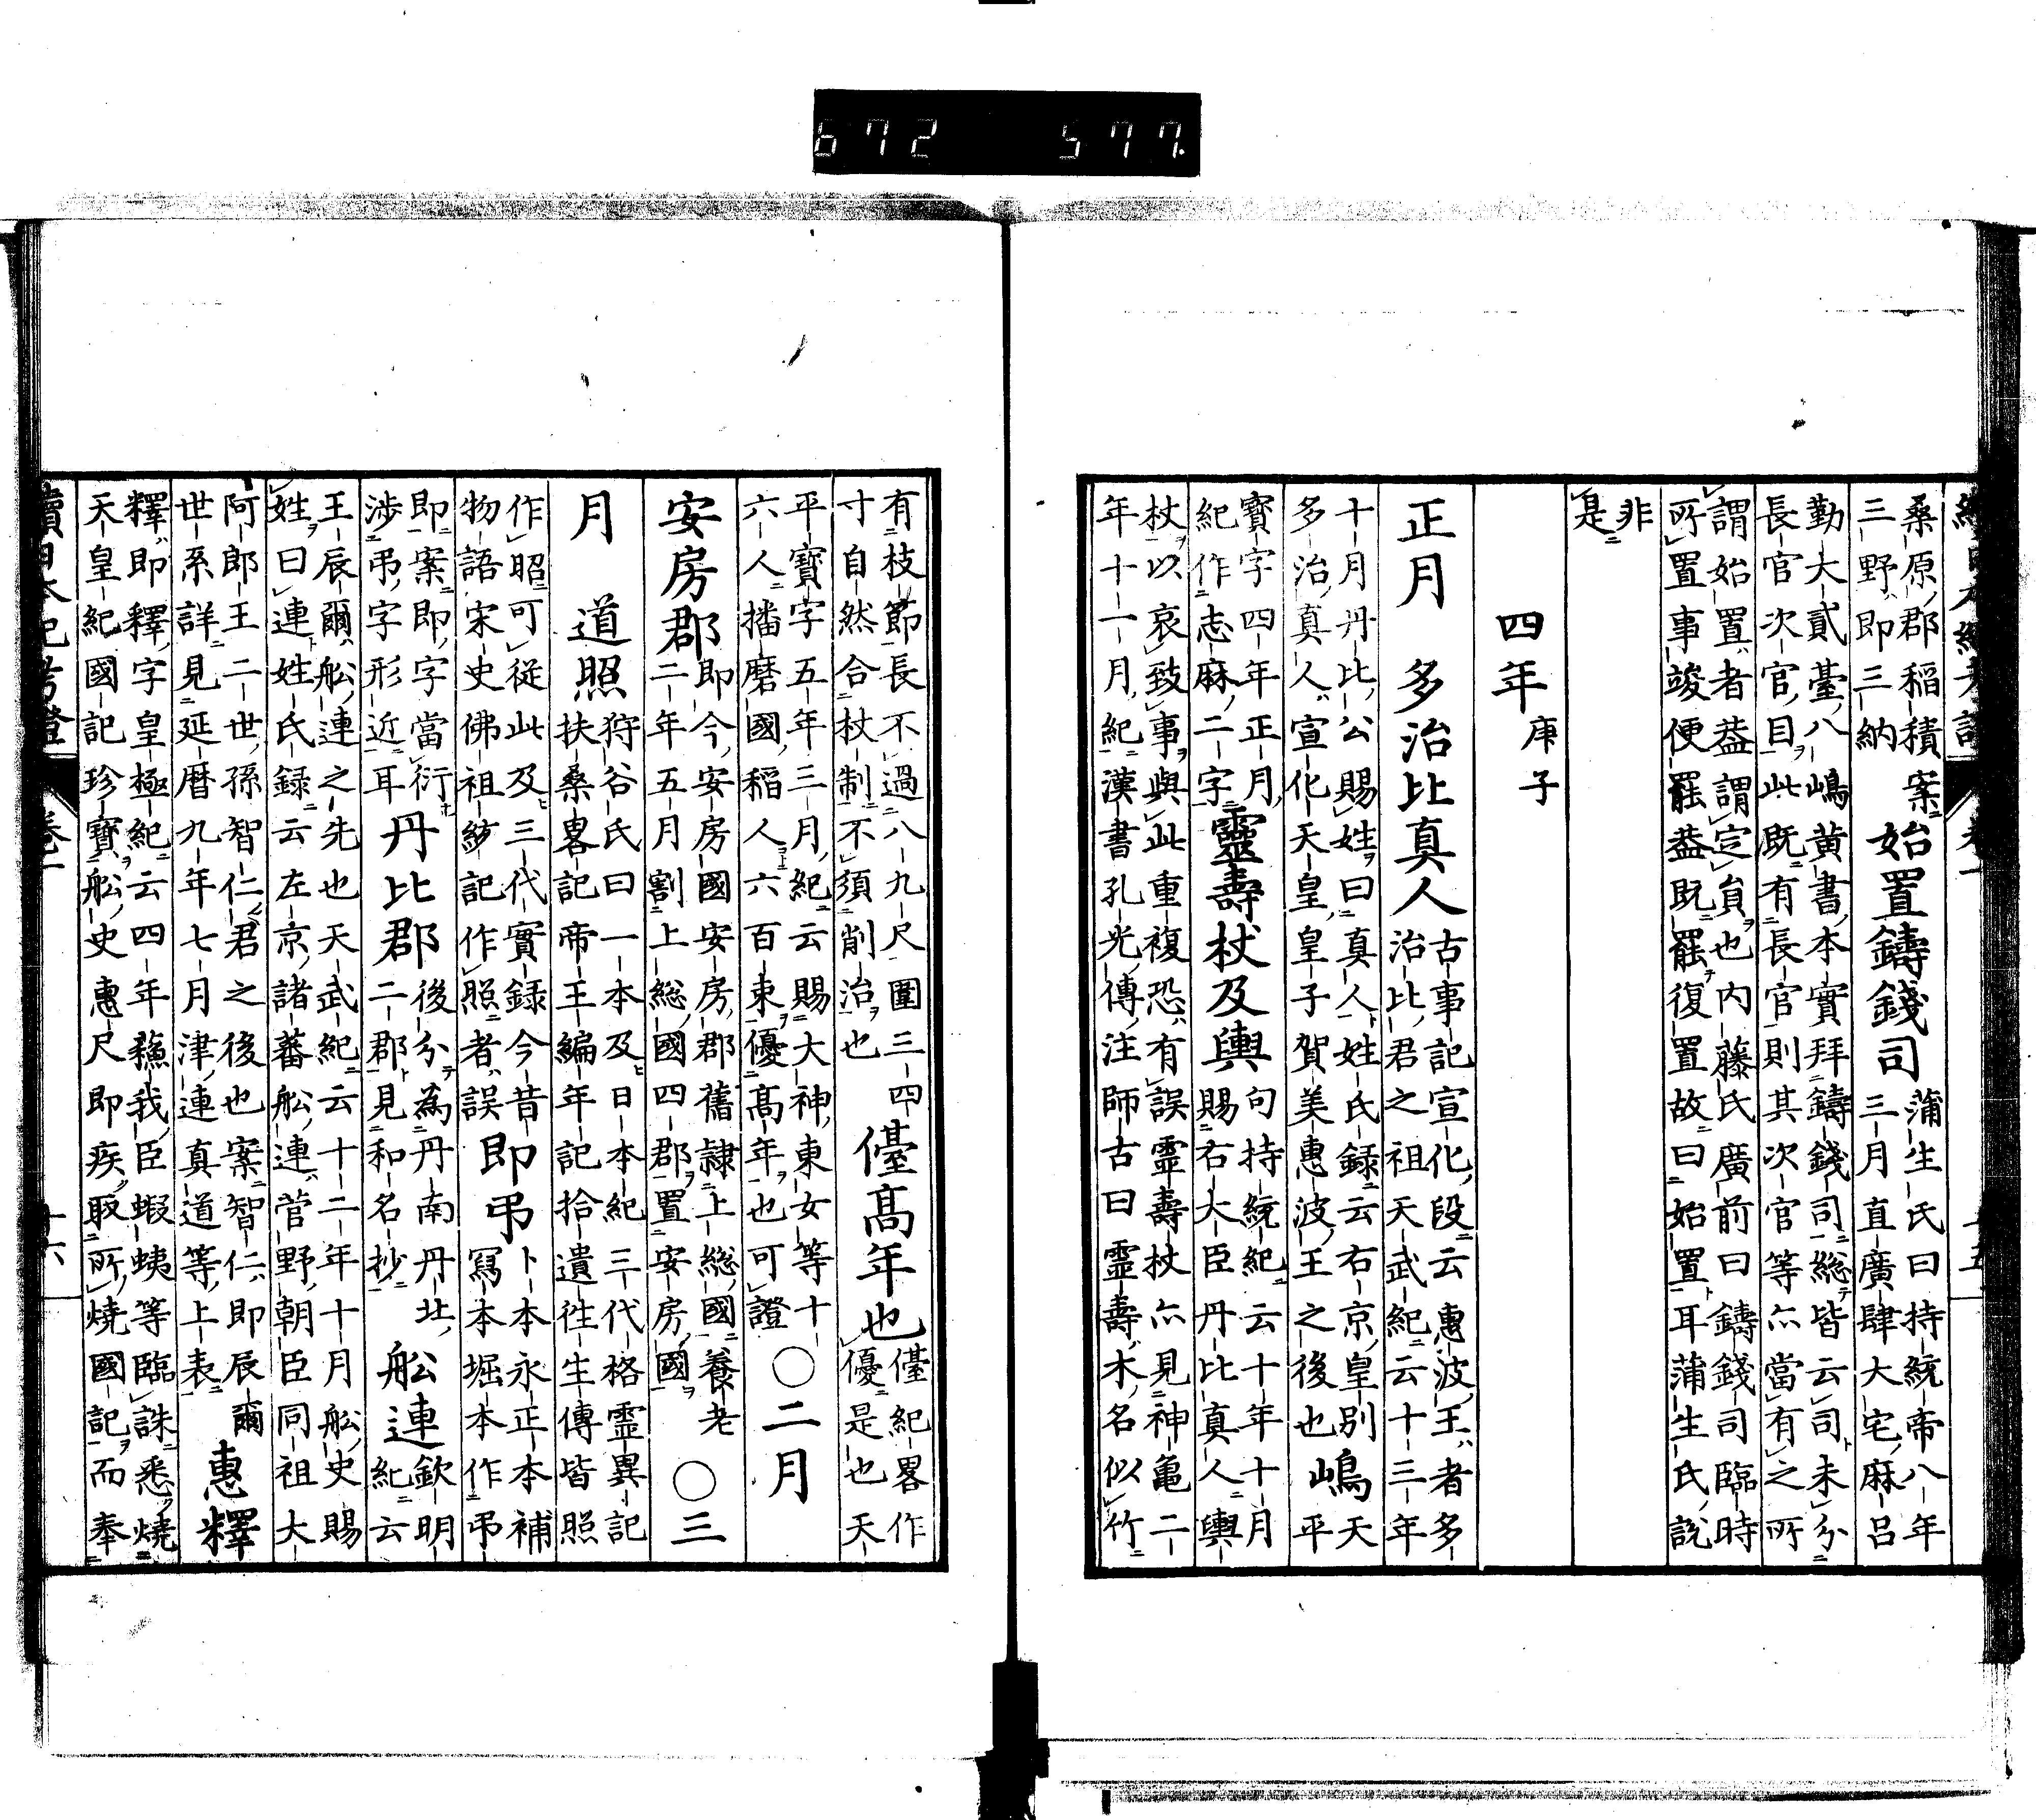 672 577.
桑原郡稲積案三野即三納
始置鑄錢司
蒲生氏曰持統帝八年三月直廣肆大宅麻呂
勤大貳臺八嶋黄書本實拜鑄錢司総皆云司未分
長官次官目此既有長官則其次官等亦當有之所
謂始置者葢謂定員也内藤氏廣前曰鑄錢司臨時
所置事竣便罷葢既罷復置故曰始置耳蒲生氏説
非是
四年庚子
正月
多治比真人
古事記宣化段云惠波王者多治比君之祖天武紀云十三年
十月丹比公賜姓曰真人姓氏録云右京皇別
多治真人宣化天皇皇子賀美惠波王之後也
嶋
天平
寳字四年正月紀作志麻二字
靈壽杖及輿
句持統紀云十年十月賜右大臣丹比真人輿
杖以哀致事與此重複恐有誤靈壽杖亦見神亀二
年十一月紀漢書孔光傳注師古曰靈壽木名似竹
有枝節長不過八九尺圍三四
寸自然合杖制不須削治也
儓髙年也
儓紀畧作優是也天
平寳字五年三月紀云賜大神東女等十
六人播磨國稲人六百束優髙年也可證
〇二月
安房郡
即今安房國安房郡舊隷上総國養老
二年五月割上総國四郡置安房國
〇三月
道照
狩谷氏曰一本及日本紀三代格霊異記
扶桑畧記帝王編年記拾遺徃生傳皆照
作昭可從此及三代實録今昔
物語宋史佛祖綂記作照者誤
即弔
卜本永正本補
冩本堀本作弔
即案即字當衍
渉弔字形近耳
丹比郡
後分為丹南丹北
二郡見和名抄
舩連
欽明紀云
王辰爾舩連之先也天武紀云十二年十月舩史賜
姓曰連姓氏録云左京諸蕃舩連菅野朝臣同祖大
阿郎王二世孫智仁君之後也案智仁即辰爾
世系詳見延暦九年七月津連真道等上表
惠釋
釋即釋字皇極紀云四年蘓我臣蝦蛦等臨誅悉燒
天皇紀國記珍寳舩史惠尺即疾取所燒國記而奉
續日本紀考證
卷一
十六